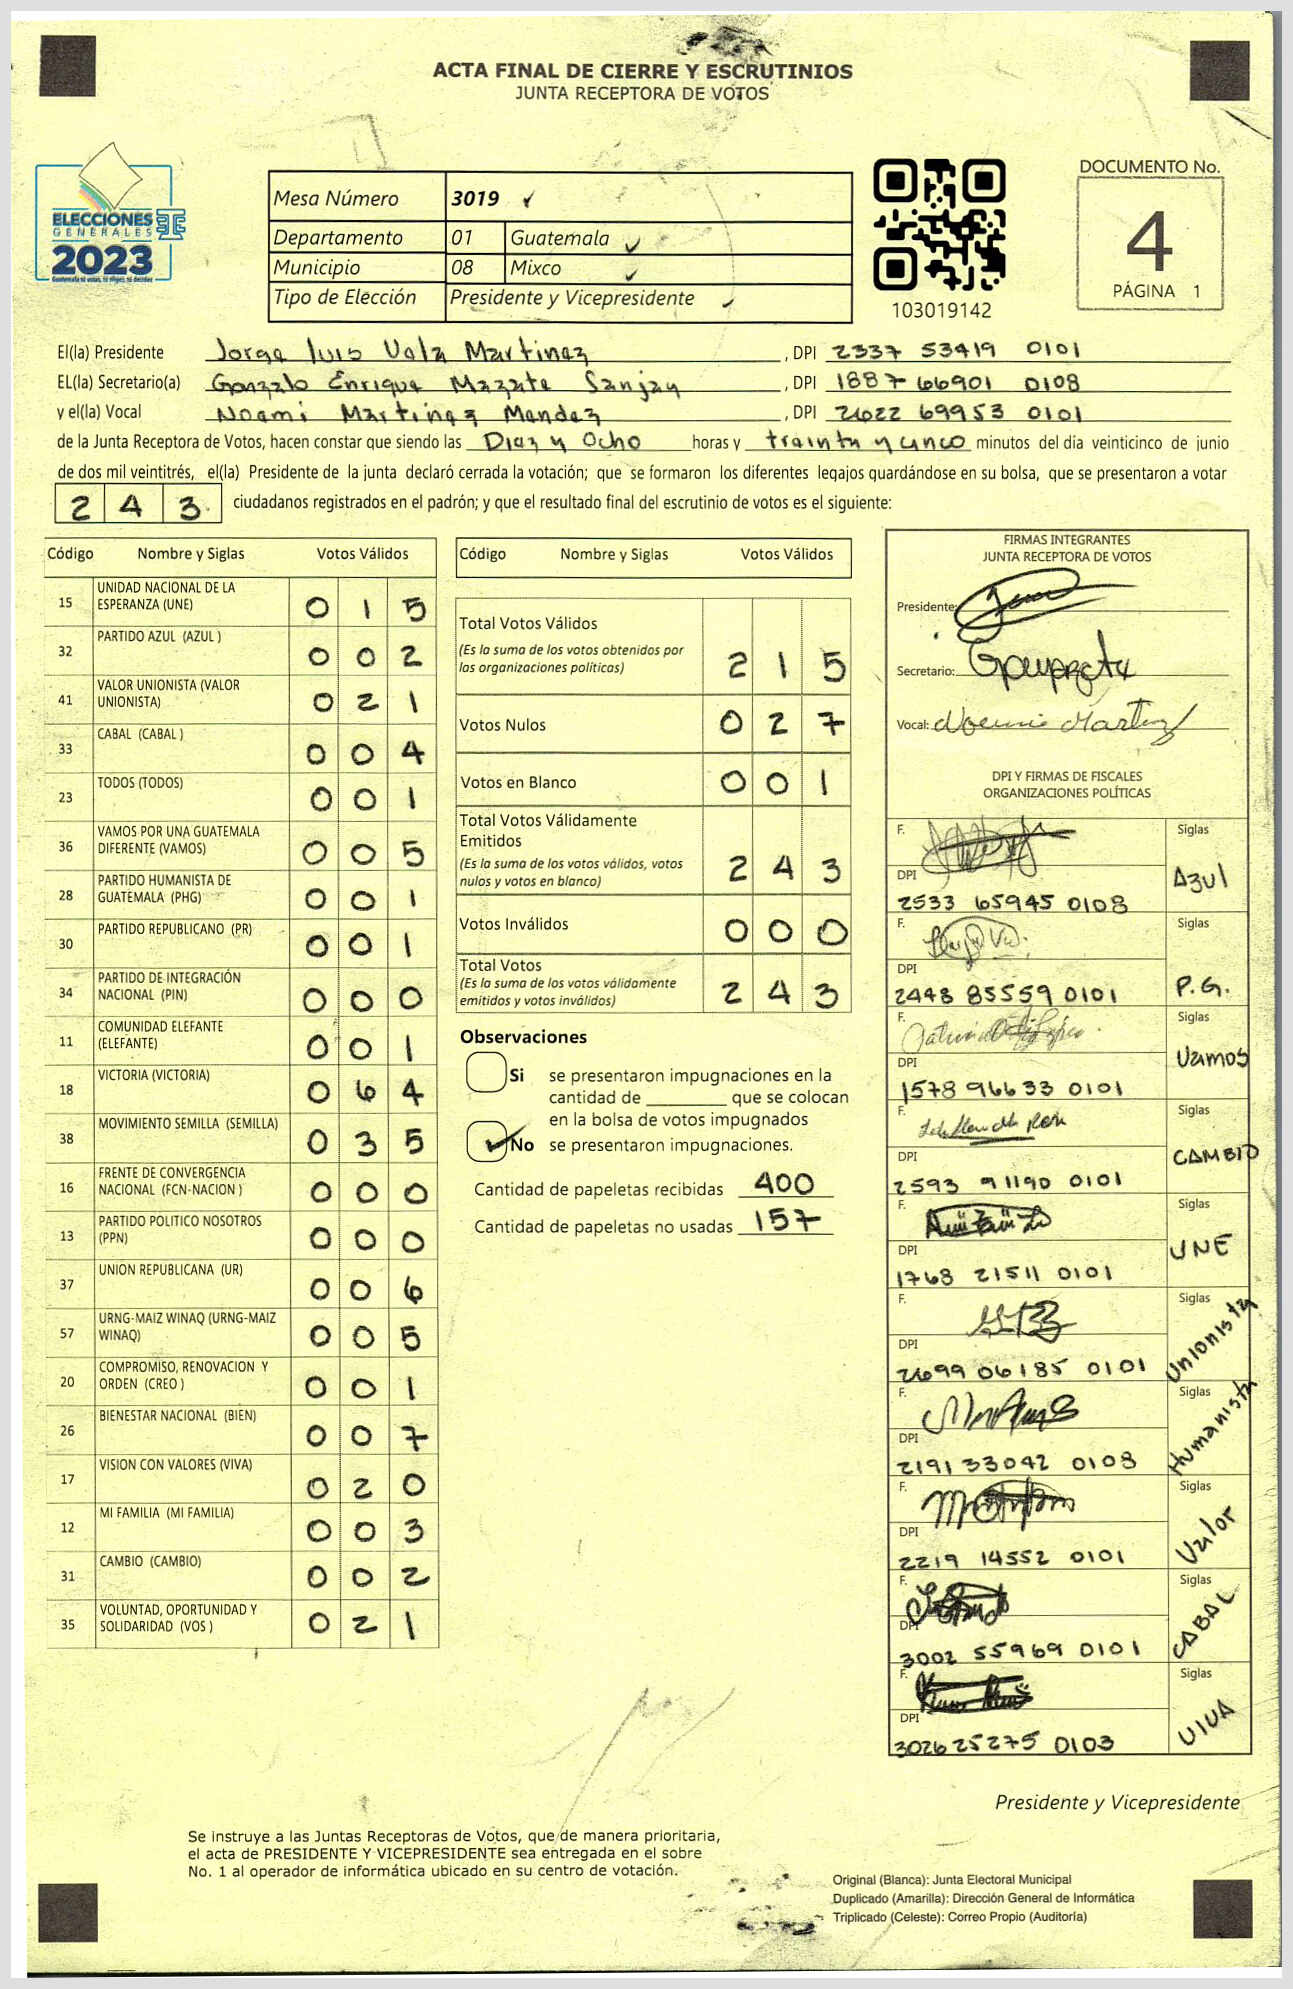 ACTA FINAL DE CIERRE Y ESCRUTINIOS
JUNTA RECEPTORA DE VOTOS
ELECCIONES
GENERALES
2023
Mesa Número 3019
Departamento 01 Guatemala
Municipio 08 Mixco
Tipo de Elección Presidente y Vicepresidente
103019142
DOCUMENTO No.
4
PÁGINA 1
El(la) Presidente Jorge Luis Vela Martinez, DPI 2337 53419 0101
EL(la) Secretario(a) Gonzalo Enrique Mazate Sanjay, DPI 1887 66901 0108
y el(la) Vocal Noemi Martinez Mendez, DPI 2622 69953 0101
de la Junta Receptora de Votos, hacen constar que siendo las Diez y Ocho horas y treinta y cinco minutos del día veinticinco de junio
de dos mil veintitrés, el(la) Presidente de la junta declaró cerrada la votación; que se formaron los diferentes legajos guardándose en su bolsa, que se presentaron a votar
243 ciudadanos registrados en el padrón; y que el resultado final del escrutinio de votos es el siguiente:
Código Nombre y Siglas Votos Válidos
15 UNIDAD NACIONAL DE LA ESPERANZA (UNE) 0 1 5
32 PARTIDO AZUL (AZUL ) 0 0 2
41 VALOR UNIONISTA (VALOR UNIONISTA) 0 2 1
33 CABAL (CABAL ) 0 0 4
23 TODOS (TODOS) 0 0 1
36 VAMOS POR UNA GUATEMALA DIFERENTE (VAMOS) 0 0 5
28 PARTIDO HUMANISTA DE GUATEMALA (PHG) 0 0 1
30 PARTIDO REPUBLICANO (PR) 0 0 1
34 PARTIDO DE INTEGRACIÓN NACIONAL (PIN) 0 0 0
11 COMUNIDAD ELEFANTE (ELEFANTE) 0 0 1
18 VICTORIA (VICTORIA) 0 6 4
38 MOVIMIENTO SEMILLA (SEMILLA) 0 3 5
16 FRENTE DE CONVERGENCIA NACIONAL (FCN-NACION ) 0 0 0
13 PARTIDO POLITICO NOSOTROS (PPN) 0 0 0
37 UNION REPUBLICANA (UR) 0 0 6
57 URNG-MAIZ WINAQ (URNG-MAIZ WINAQ) 0 0 5
20 COMPROMISO, RENOVACION Y ORDEN (CREO ) 0 0 1
26 BIENESTAR NACIONAL (BIEN) 0 0 7
17 VISION CON VALORES (VIVA) 0 2 0
12 MI FAMILIA (MI FAMILIA) 0 0 3
31 CAMBIO (CAMBIO) 0 0 2
35 VOLUNTAD, OPORTUNIDAD Y SOLIDARIDAD (VOS ) 0 2 1
Código Nombre y Siglas Votos Válidos
Total Votos Válidos
(Es la suma de los votos obtenidos por
las organizaciones políticas) 2 1 5
Votos Nulos 0 2 7
Votos en Blanco 0 0 1
Total Votos Válidamente
Emitidos
(Es la suma de los votos válidos, votos
nulos y votos en blanco) 2 4 3
Votos Inválidos 0 0 0
Total Votos
(Es la suma de los votos válidamente
emitidos y votos inválidos) 2 4 3
Observaciones
Si se presentaron impugnaciones en la
cantidad de ________ que se colocan
en la bolsa de votos impugnados
No se presentaron impugnaciones.
Cantidad de papeletas recibidas 400
Cantidad de papeletas no usadas 157
FIRMAS INTEGRANTES
JUNTA RECEPTORA DE VOTOS
Presidente:
Secretario:
Vocal: Noemi Martinez
DPI Y FIRMAS DE FISCALES
ORGANIZACIONES POLÍTICAS
F. Siglas
DPI Azul
2533 65945 0108
F. Siglas
DPI P.G.
2448 85559 0101
F. Siglas
DPI Vamos
1578 96633 0101
F. Siglas
DPI CAMBIO
2593 91190 0101
F. Siglas
DPI UNE
1768 21511 0101
F. Siglas
DPI Unionista
2699 06185 0101
F. Siglas
DPI Humanista
2191 33042 0108
F. Siglas
DPI Valor
2219 14552 0101
F. Siglas
DPI CABAL
3002 55969 0101
F. Siglas
DPI VIVA
3026 25275 0103
Presidente y Vicepresidente
Se instruye a las Juntas Receptoras de Votos, que de manera prioritaria,
el acta de PRESIDENTE Y VICEPRESIDENTE sea entregada en el sobre
No. 1 al operador de informática ubicado en su centro de votación.
Original (Blanca): Junta Electoral Municipal
Duplicado (Amarilla): Dirección General de Informática
Triplicado (Celeste): Correo Propio (Auditoría)